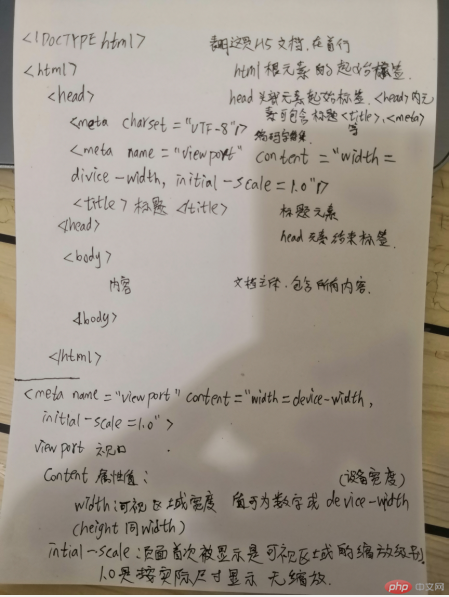 <!DOCTYPE html> 表明这是H5文档,在首行
<html> html根元素的起始标签
<head> head头部元素起始标签,<head>内元
素可包含标题<title>,<meta>等
<meta charset="UTF-8"/> 编码字符集
<meta name="viewport" content="width=
divice-width, initial-scale=1.0"/>
<title>标题</title> 标题元素
</head> head元素结束标签
<body>
内容 文档主体,包含所有内容.
</body>
</html>
<meta name="viewport" content="width=device-width,
initial-scale=1.0">
viewport 视口
Content 属性值: (设备宽度)
width:可视区域宽度 值可为数字或device-width
(height同width)
intial-scale:页面首次被显示是可视区域的缩放级别.
1.0是按实际尺寸显示 无缩放.
php中文网